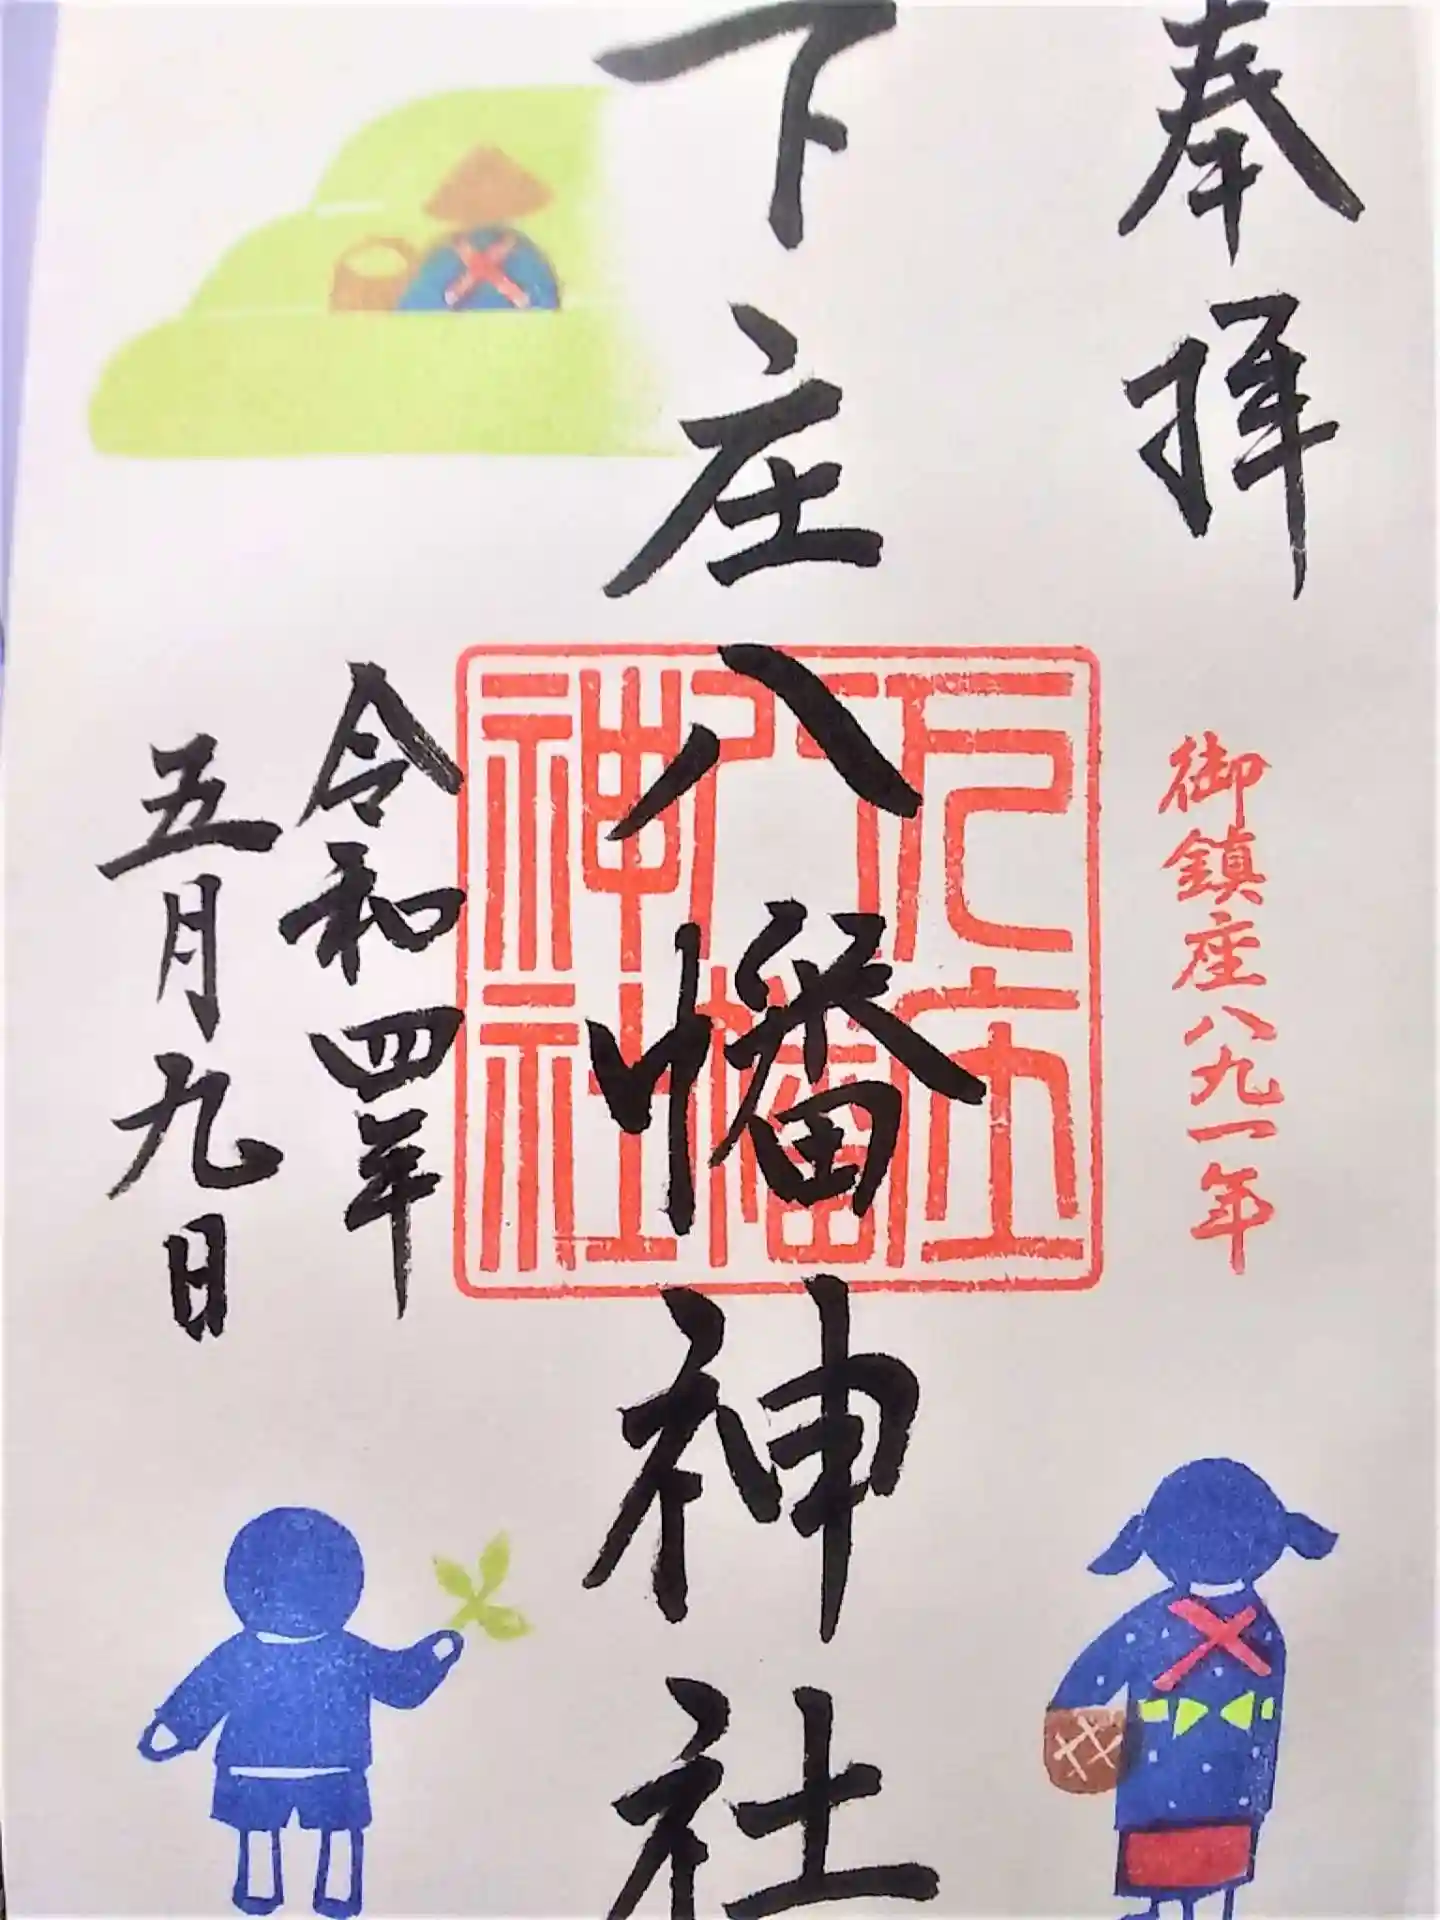 奉拝
御鎮座八九一年
下庄八幡神社
下庄
八幡
神社
令和四年
五月九日